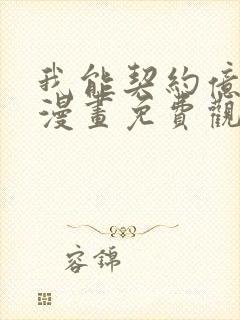 我能契約億
漫畫免費觀
容錦